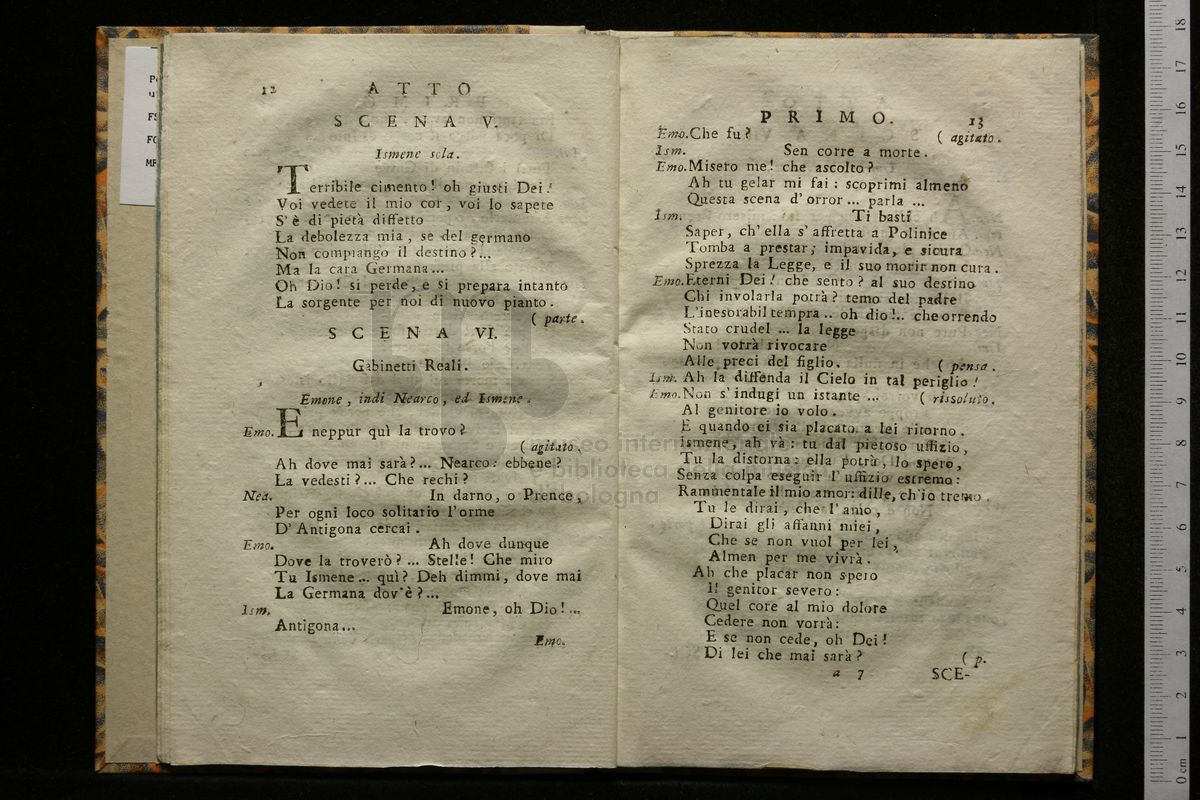 12 ATTO
SCENA V.
Ismene sola.
Terribile cimento! oh giusti Dei!
Voi vedete il mio cor, voi lo sapete
S'è di pietà diffetto
La debolezza mia, se del germano
Non compiango il destino?...
Ma la cara Germana...
Oh Dio! si perde, e si prepara intanto
La sorgente per noi di nuovo pianto.
( parte.
SCENA VI.
Gabinetti Reali.
Emone, indi Nearco, ed Ismene.
Emo. E neppur quì la trovo?
( agitato.
Ah dove mai sarà?... Nearco: ebbene?
La vedesti?... Che rechi?
Nea. In darno, o Prence,
Per ogni loco solitario l'orme
D'Antigona cercai.
Emo. Ah dove dunque
Dove la troverò?... Stelle! Che miro
Tu Ismene... quì? Deh dimmi, dove mai
La Germana dov'è?...
Ism. Emone, oh Dio!...
Antigona...
Emo.
PRIMO. 13
Emo. Che fu? ( agitato.
Ism. Sen corre a morte.
Emo. Misero me! che ascolto?
Ah tu gelar mi fai: scoprimi almeno
Questa scena d'orror... parla...
Ism. Ti basti
Saper, ch'ella s'affretta a Polinice
Tomba a prestar; impavida, e sicura
Sprezza la Legge, e il suo morir non cura.
Emo. Eterni Dei! che sento? al suo destino
Chi involarla potrà? temo del padre
L'inesorabil tempra.. oh dio!.. che orrendo
Stato crudel... la legge
Non vorrà rivocare
Alle preci del figlio. ( pensa.
Ism. Ah la diffenda il Cielo in tal periglio!
Emo. Non s'indugi un istante... ( rissoluto.
Al genitore io volo.
E quando ei sia placato a lei ritorno.
Ismene, ah và: tu dal pietoso uffizio,
Tu la distorna: ella potrà, lo spero,
Senza colpa eseguir l'uffizio estremo:
Rammentale il mio amor: dille, ch'io tremo.
Tu le dirai, che l'amo,
Dirai gli affanni miei,
Che se non vuol per lei,
Almen per me vivrà.
Ah che placar non spero
Il genitor severo:
Quel core al mio dolore
Cedere non vorrà:
E se non cede, oh Dei!
Di lei che mai sarà? ( p.
a 7 SCE-